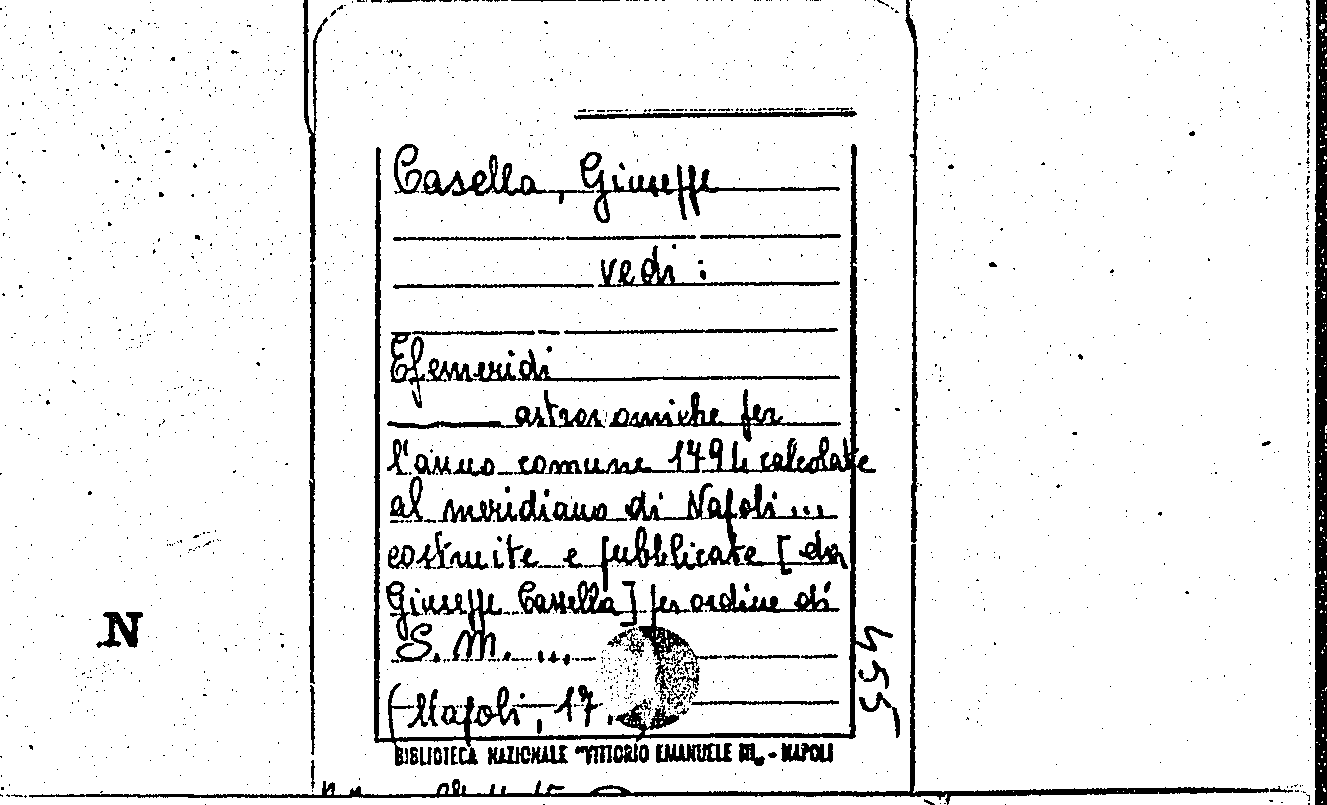 Casella, Giuseppe
vedi :
Efemeridi
astronomiche per
l'anno comune 1794 calcolate
al meridiano di Napoli ...
costruite e pubblicate [ da
Giuseppe Casella] per ordine di
S. M. ...
(Napoli, 17.
455
N
BIBLIOTECA NAZIONALE "VITTORIO EMANUELE III„ - NAPOLI